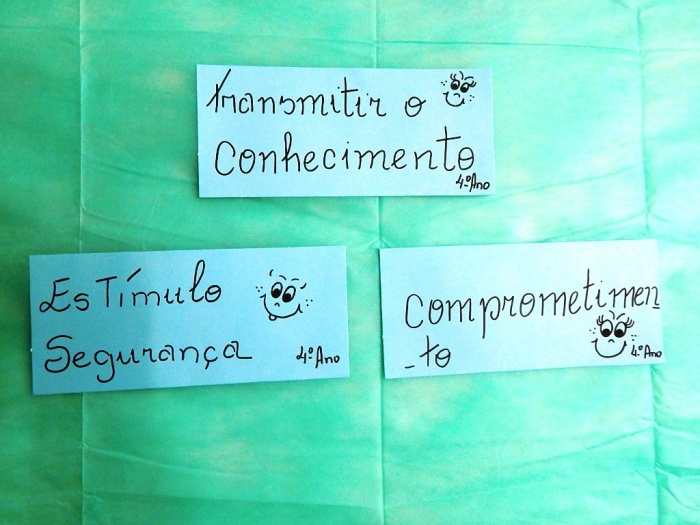 Transmitir o
Conhecimento
4º Ano
Estímulo
Segurança
4º Ano
Comprometimen
-to
4º Ano